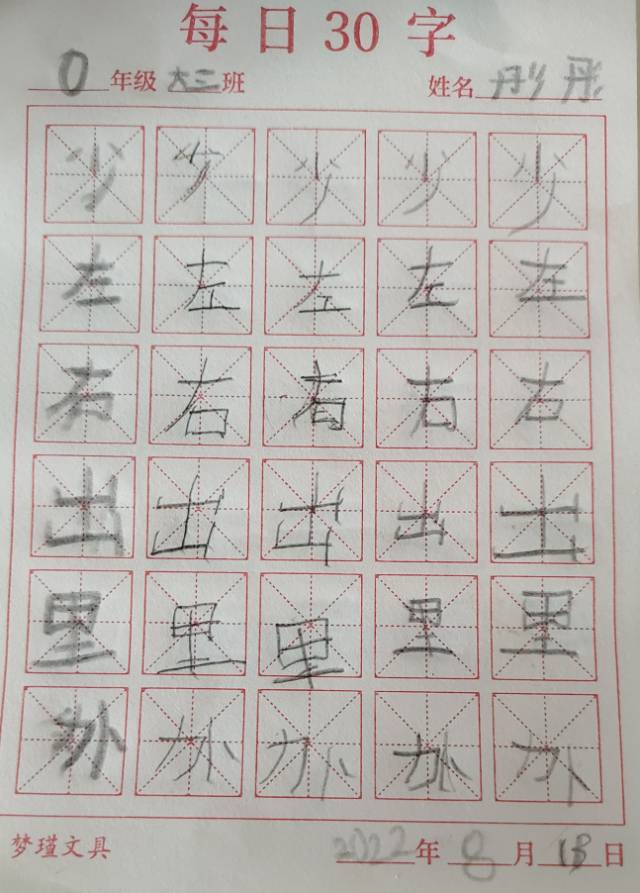 每日30字
0年级 大三班 姓名 彤彤
少少少少少
左左左左左
右右右右右
出出出出出
里里里里里
外外外外外
梦瑾文具 2022年 8月 13日